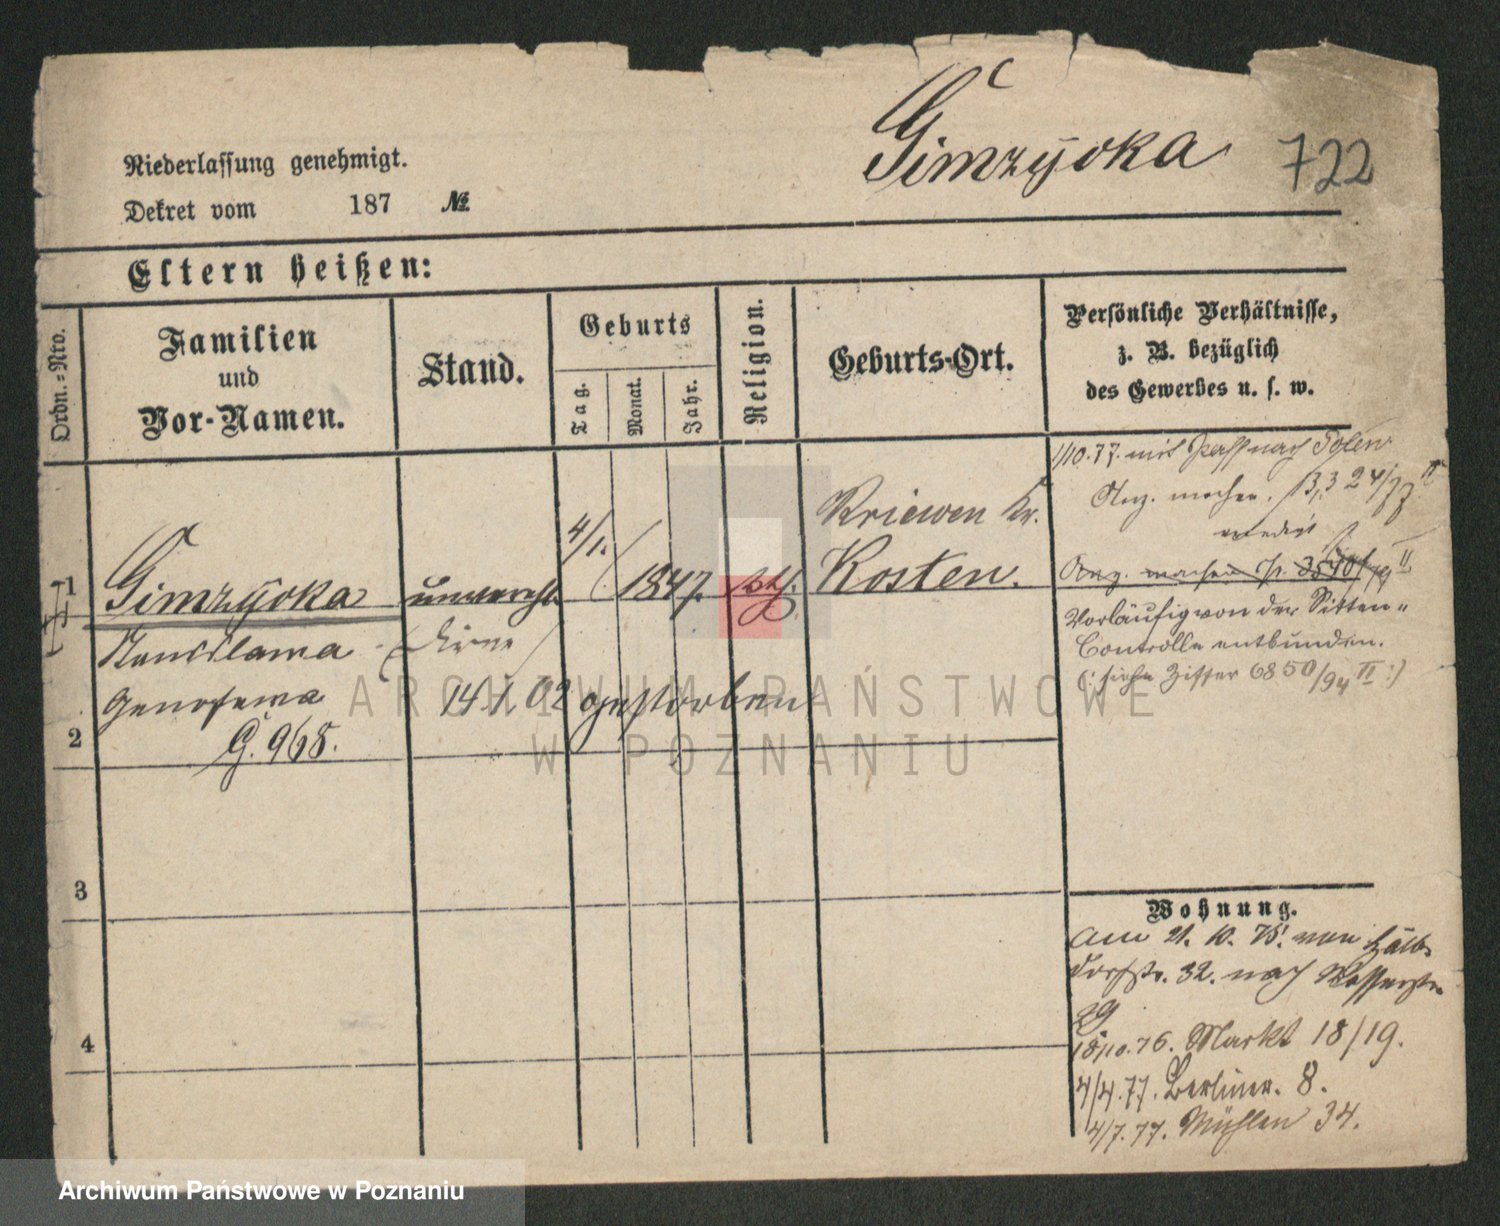 Gimzycka 722
Niederlassung genehmigt.
Dekret vom 187 №
Eltern heißen:
Ordn.=Nro.
Familien
und
Vor-Namen.
Stand.
Geburts
Tag.
Monat.
Jahr.
Religion.
Geburts-Ort.
Persönliche Verhältnisse,
z. B. bezüglich
des Gewerbes u. s. w.
1
Gimzycka
Genofewa
G. 968.
unvereh.
Dirne
4/1.
1847.
kth.
Kriewen Kr.
Kosten.
14/1. 02 gestorben
1/10.77. mit Pass nach Polen
Anz. machen.
wieder
Anz. machen
Vorläufig von der Sitten-
Controlle entbunden.
(: siehe Ziffer 6850/94 II :)
2
3
4
Wohnung.
Am 21. 10. 75. von Halb-
dorfstr. 32. nach Wasserstr.
29
18/10.76. Markt 18/19.
4/4.77. Berliner. 8.
4/7.77. Mühlen 34.
ARCHIWUM PAŃSTWOWE
W POZNANIU
Archiwum Państwowe w Poznaniu